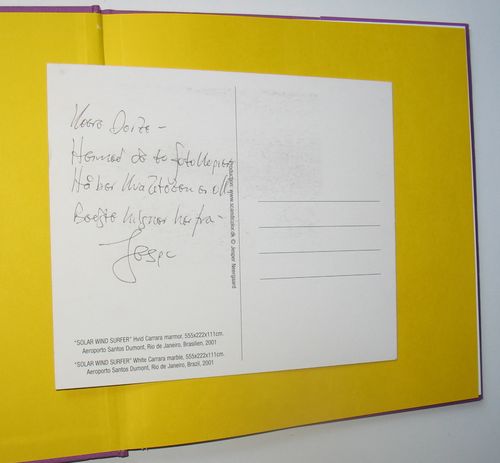 Kære Dorte -
Hermed de to fotokopier
Håber kvaliteten er ok.
Bedste hilsner herfra -
Jesper
Production: www.scandicolor.dk © Jesper Neergaard
"SOLAR WIND SURFER" Hvid Carrara marmor, 555x222x111cm.
Aeroporto Santos Dumont, Rio de Janeiro, Brasilien, 2001
"SOLAR WIND SURFER" White Carrara marble, 555x222x111cm.
Aeroporto Santos Dumont, Rio de Janeiro, Brazil, 2001